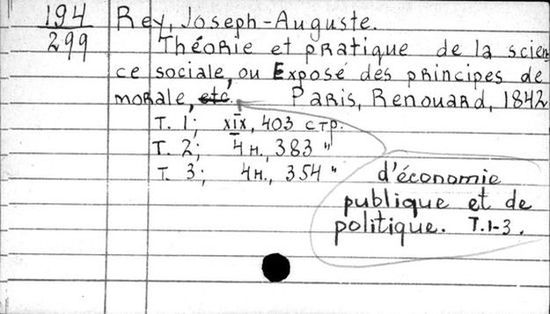 194
299
Rey, Joseph-Auguste.
Théorie et pratique de la scien
ce sociale, ou Exposé des principes de
morale, etc. Paris, Renouard, 1842
T. 1; xix, 403 стр.
T. 2; 4 н., 383 "
T. 3; 4 н., 354 "
d'économie
publique et de
politique. T.1-3.